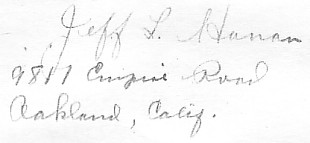 Jeff L. Hanan
9817 Empire Road
Oakland, Calif.